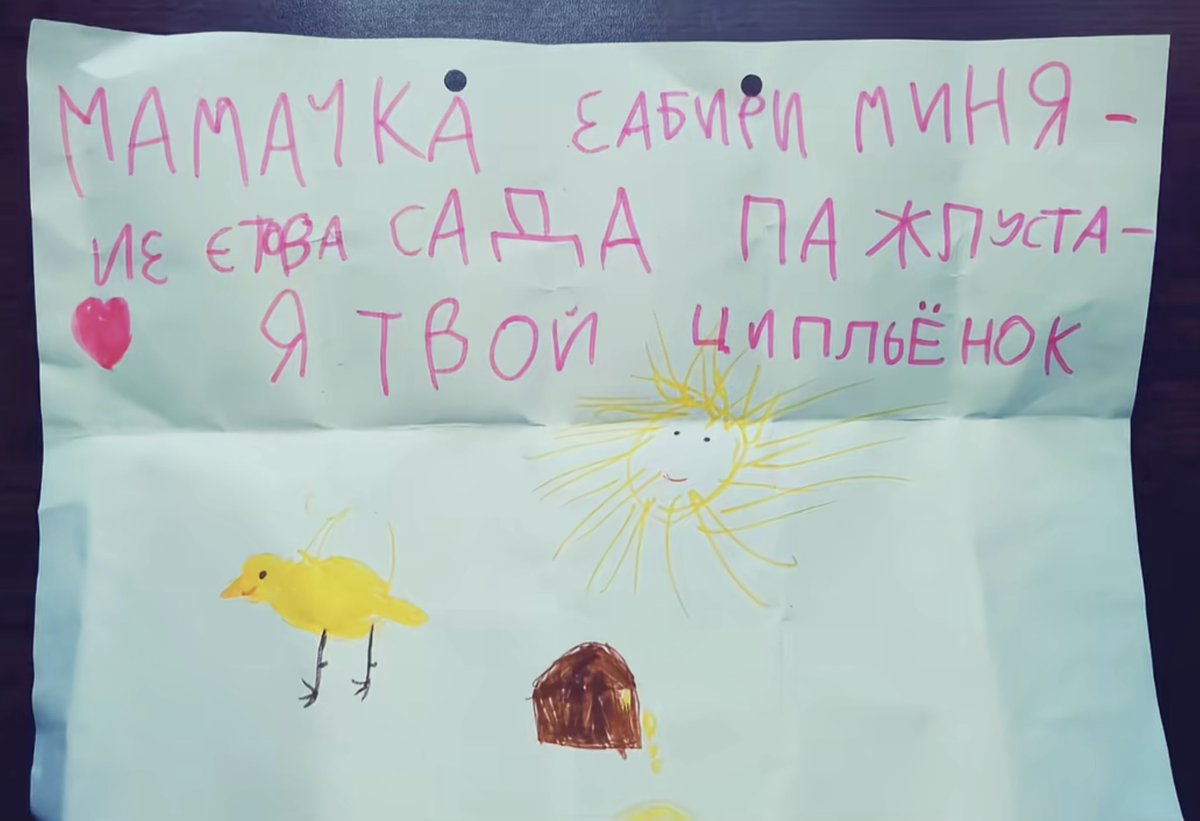 МАМАЧКА ЕАБИРИ МИНЯ -
ИЕ ЄТОВА САДА ПА ЖПУСТА -
Я ТВОЙ ЦИПЛЬЁНОК